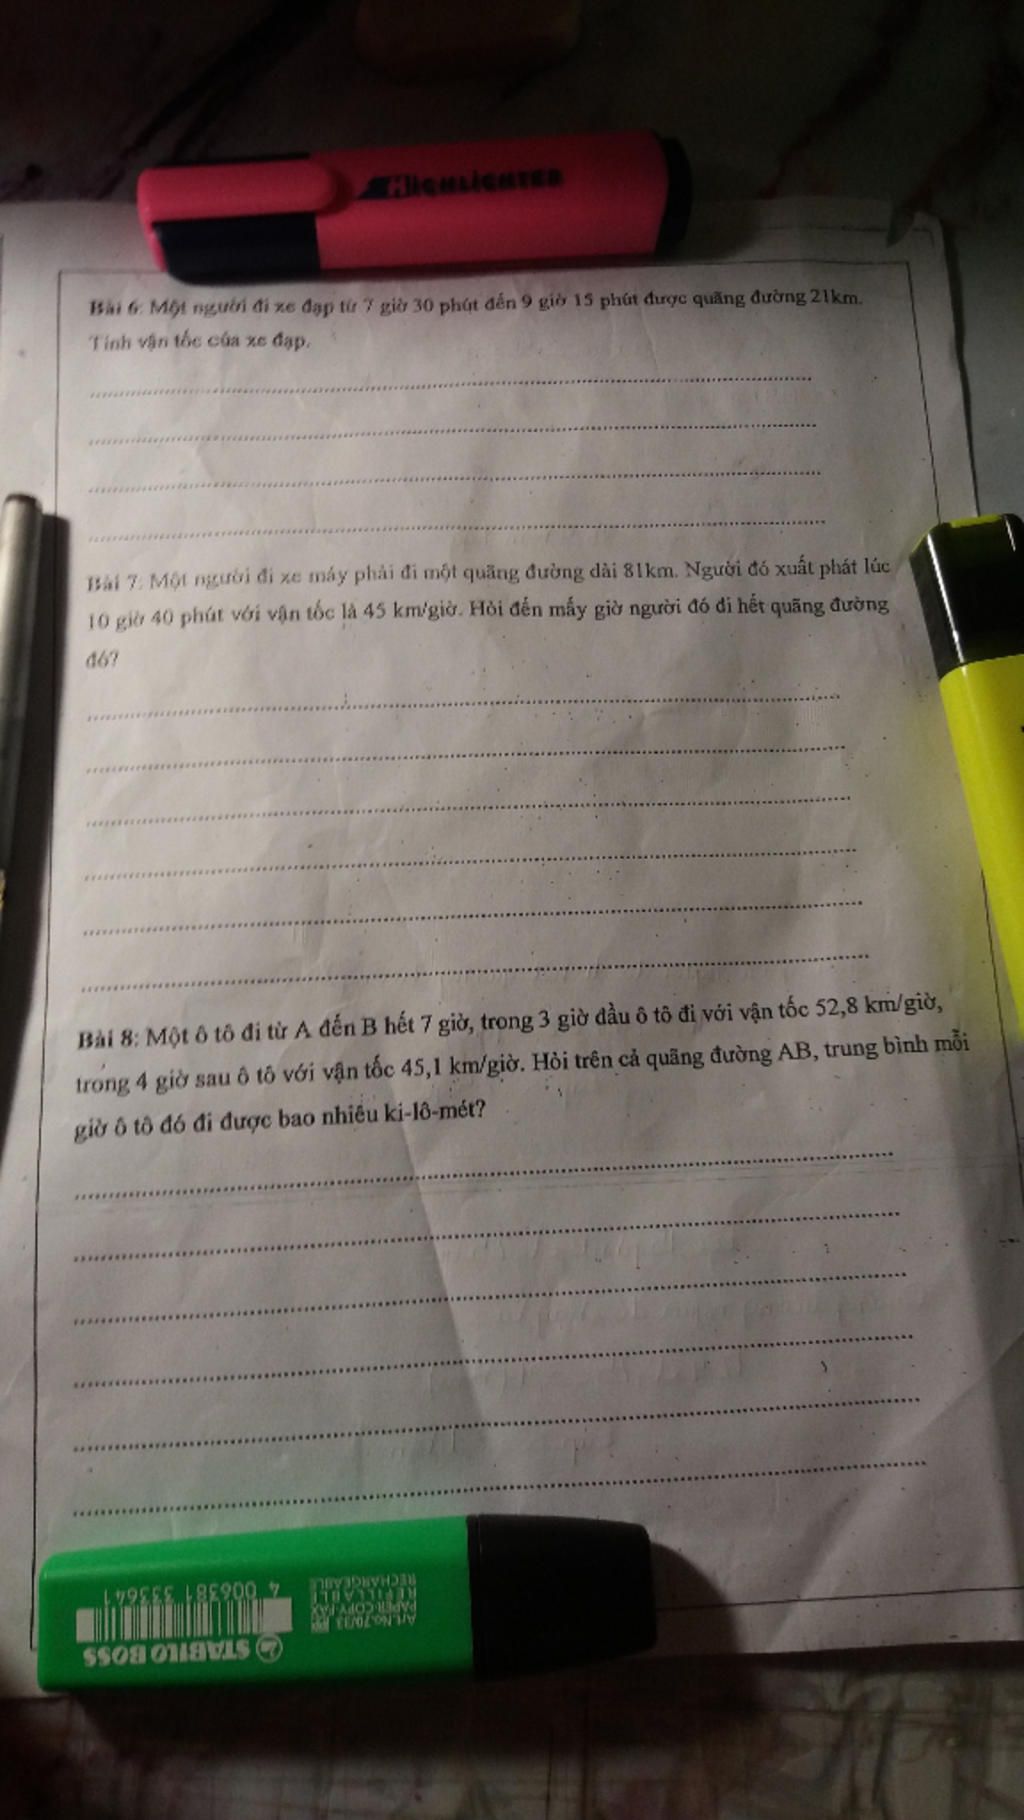 HIGHLIGHTER
Bài 6: Một người đi xe đạp từ 7 giờ 30 phút đến 9 giờ 15 phút được quãng đường 21km.
Tính vận tốc của xe đạp.
Bài 7: Một người đi xe máy phải đi một quãng đường dài 81km. Người đó xuất phát lúc
10 giờ 40 phút với vận tốc là 45 km/giờ. Hỏi đến mấy giờ người đó đi hết quãng đường
đó?
Bài 8: Một ô tô đi từ A đến B hết 7 giờ, trong 3 giờ đầu ô tô đi với vận tốc 52,8 km/giờ,
trong 4 giờ sau ô tô với vận tốc 45,1 km/giờ. Hỏi trên cả quãng đường AB, trung bình mỗi
giờ ô tô đó đi được bao nhiêu ki-lô-mét?
STABILO BOSS
4 006381 333641
Art.No.70/33
PAPER-COPY-FAX
REFILLABLE
RECHARGEABLE